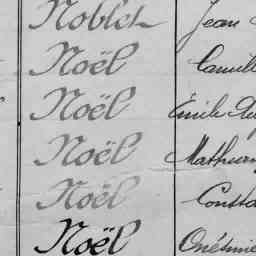 Noblet Jean
Noël Camill
Noël Émile Au
Noël Mathurin
Noël Consta
Noël Onésime